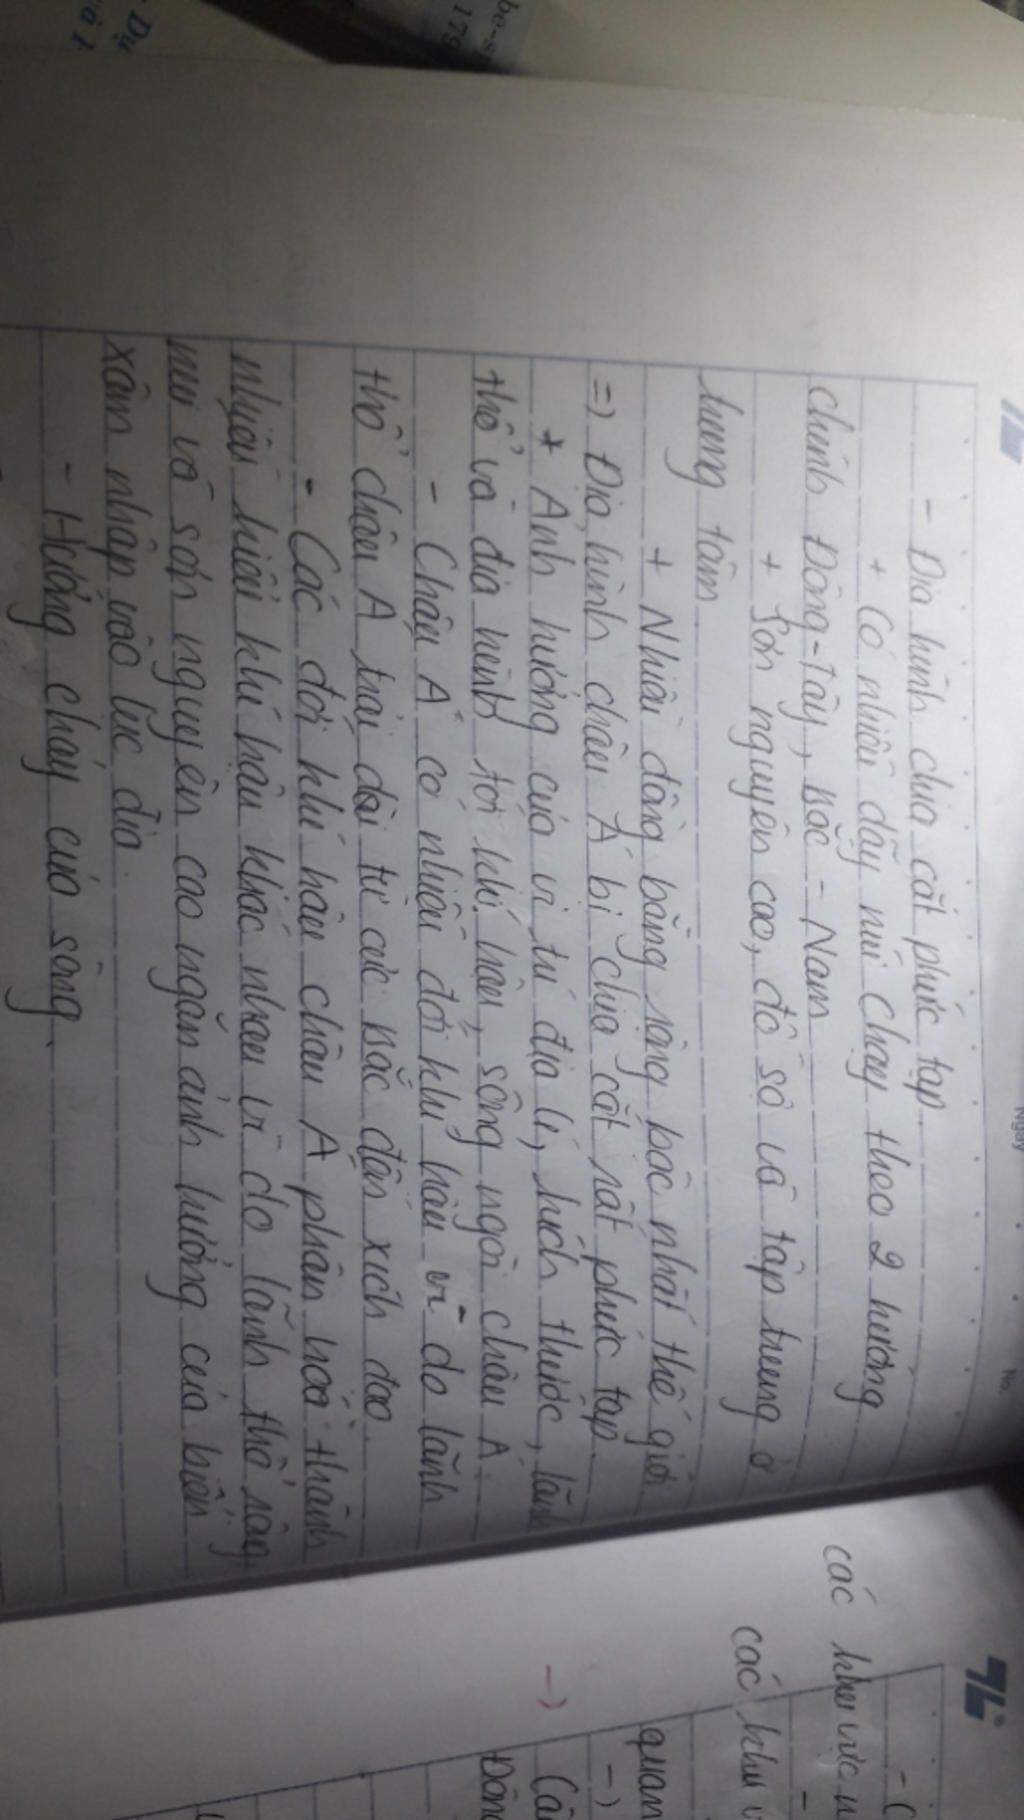 Ngày
No.
- Địa hình chia cắt phức tạp
+ Có nhiều dãy núi chạy theo 2 hướng
chính Đông-Tây, Bắc - Nam
+ Sơn nguyên cao, đồ sộ và tập trung ở
trung tâm
+ Nhiều đồng bằng rộng bậc nhất thế giới
=) Địa hình châu Á bị chia cắt rất phức tạp.
* Ảnh hưởng của vị trí địa lí, kích thước, lãnh
thổ và địa hình tới khí hậu, sông ngòi châu Á.
- Châu Á có nhiều đới khí hậu vì do lãnh
thổ châu Á trải dài từ cực Bắc đến xích đạo.
- Các đới khí hậu châu Á phân hóa thành
nhiều kiểu khí hậu khác nhau vì do lãnh thổ rộng,
núi và sơn nguyên cao ngăn ảnh hưởng của biển
xâm nhập vào lục địa.
- Hướng chảy của sông.
các khu vực
các khu
quan
-)
-)
Đông
be-s
179
Dụ
và 1